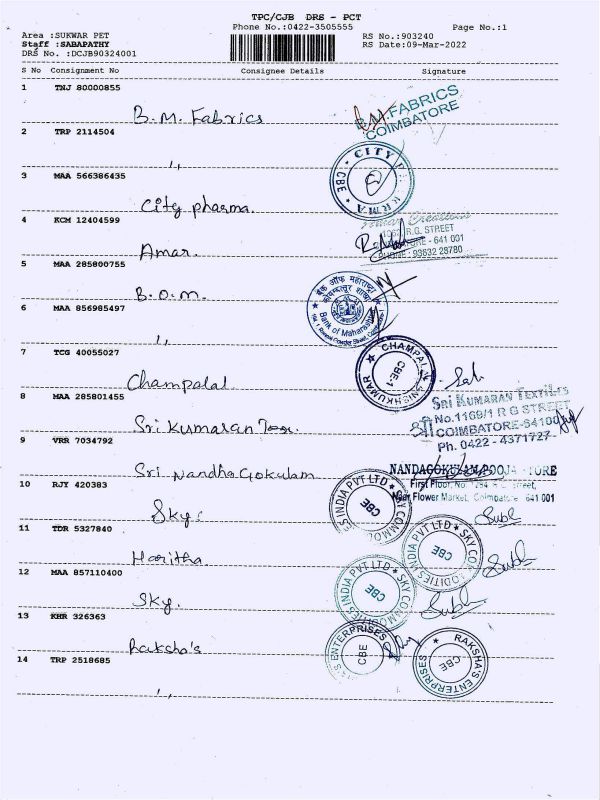 TPC/CJB DRS - PCT
Phone No.:0422-3505555 Page No.:1
Area :SUKWAR PET RS No.:903240
Staff :SABAPATHY RS Date:09-Mar-2022
DRS No. :DCJB90324001
S No Consignment No Consignee Details Signature
1 TNJ 80000855
B.M. Fabrics
B.M. FABRICS
COIMBATORE
2 TRP 2114504
,,
3 MAA 566386435
City pharma.
CITY PHARMA
CBE
4 KCM 12404599
Amar.
Creation
R.G. STREET
- 641 001
PHONE : 93632 28780
5 MAA 285800755
B.O.M.
बैंक ऑफ महाराष्ट्र
Bank of Maharashtra
6 MAA 856985497
,,
7 TCG 40055027
Champalal
CHAMPALAL
CBE-1
8 MAA 285801455
Sri Kumaran Tex.
SRI KUMARAN TEXTILES
No.1169/1 R G STREET
COIMBATORE-641001
Ph. 0422 - 4371727
9 VRR 7034792
Sri Nandha Gokulam
NANDAGOKULAM POOJA STORE
First Floor, No. Street,
Near Flower Market, Coimbatore - 641 001
10 RJY 420383
Sky:
SKY COMMODITIES INDIA PVT LTD
CBE
Subh
11 TDR 5327840
Haritha
SKY COMMODITIES INDIA PVT LTD
CBE
Subh
12 MAA 857110400
Sky.
SKY COMMODITIES INDIA PVT LTD
CBE
Subh
13 KHR 326363
Raksha's
RAKSHA'S ENTERPRISES
CBE
RAKSHA'S ENTERPRISES
CBE
14 TRP 2518685
,,